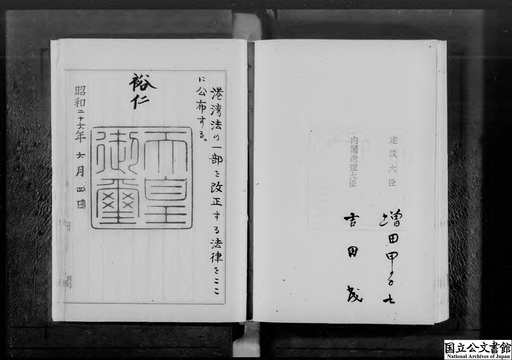 港湾法の一部を改正する法律をここ
に公布する。
裕仁
天皇
御璽
昭和二十六年六月四日
内閣総理大臣
吉田茂
建設大臣
増田甲子七
国立公文書館
National Archives of Japan